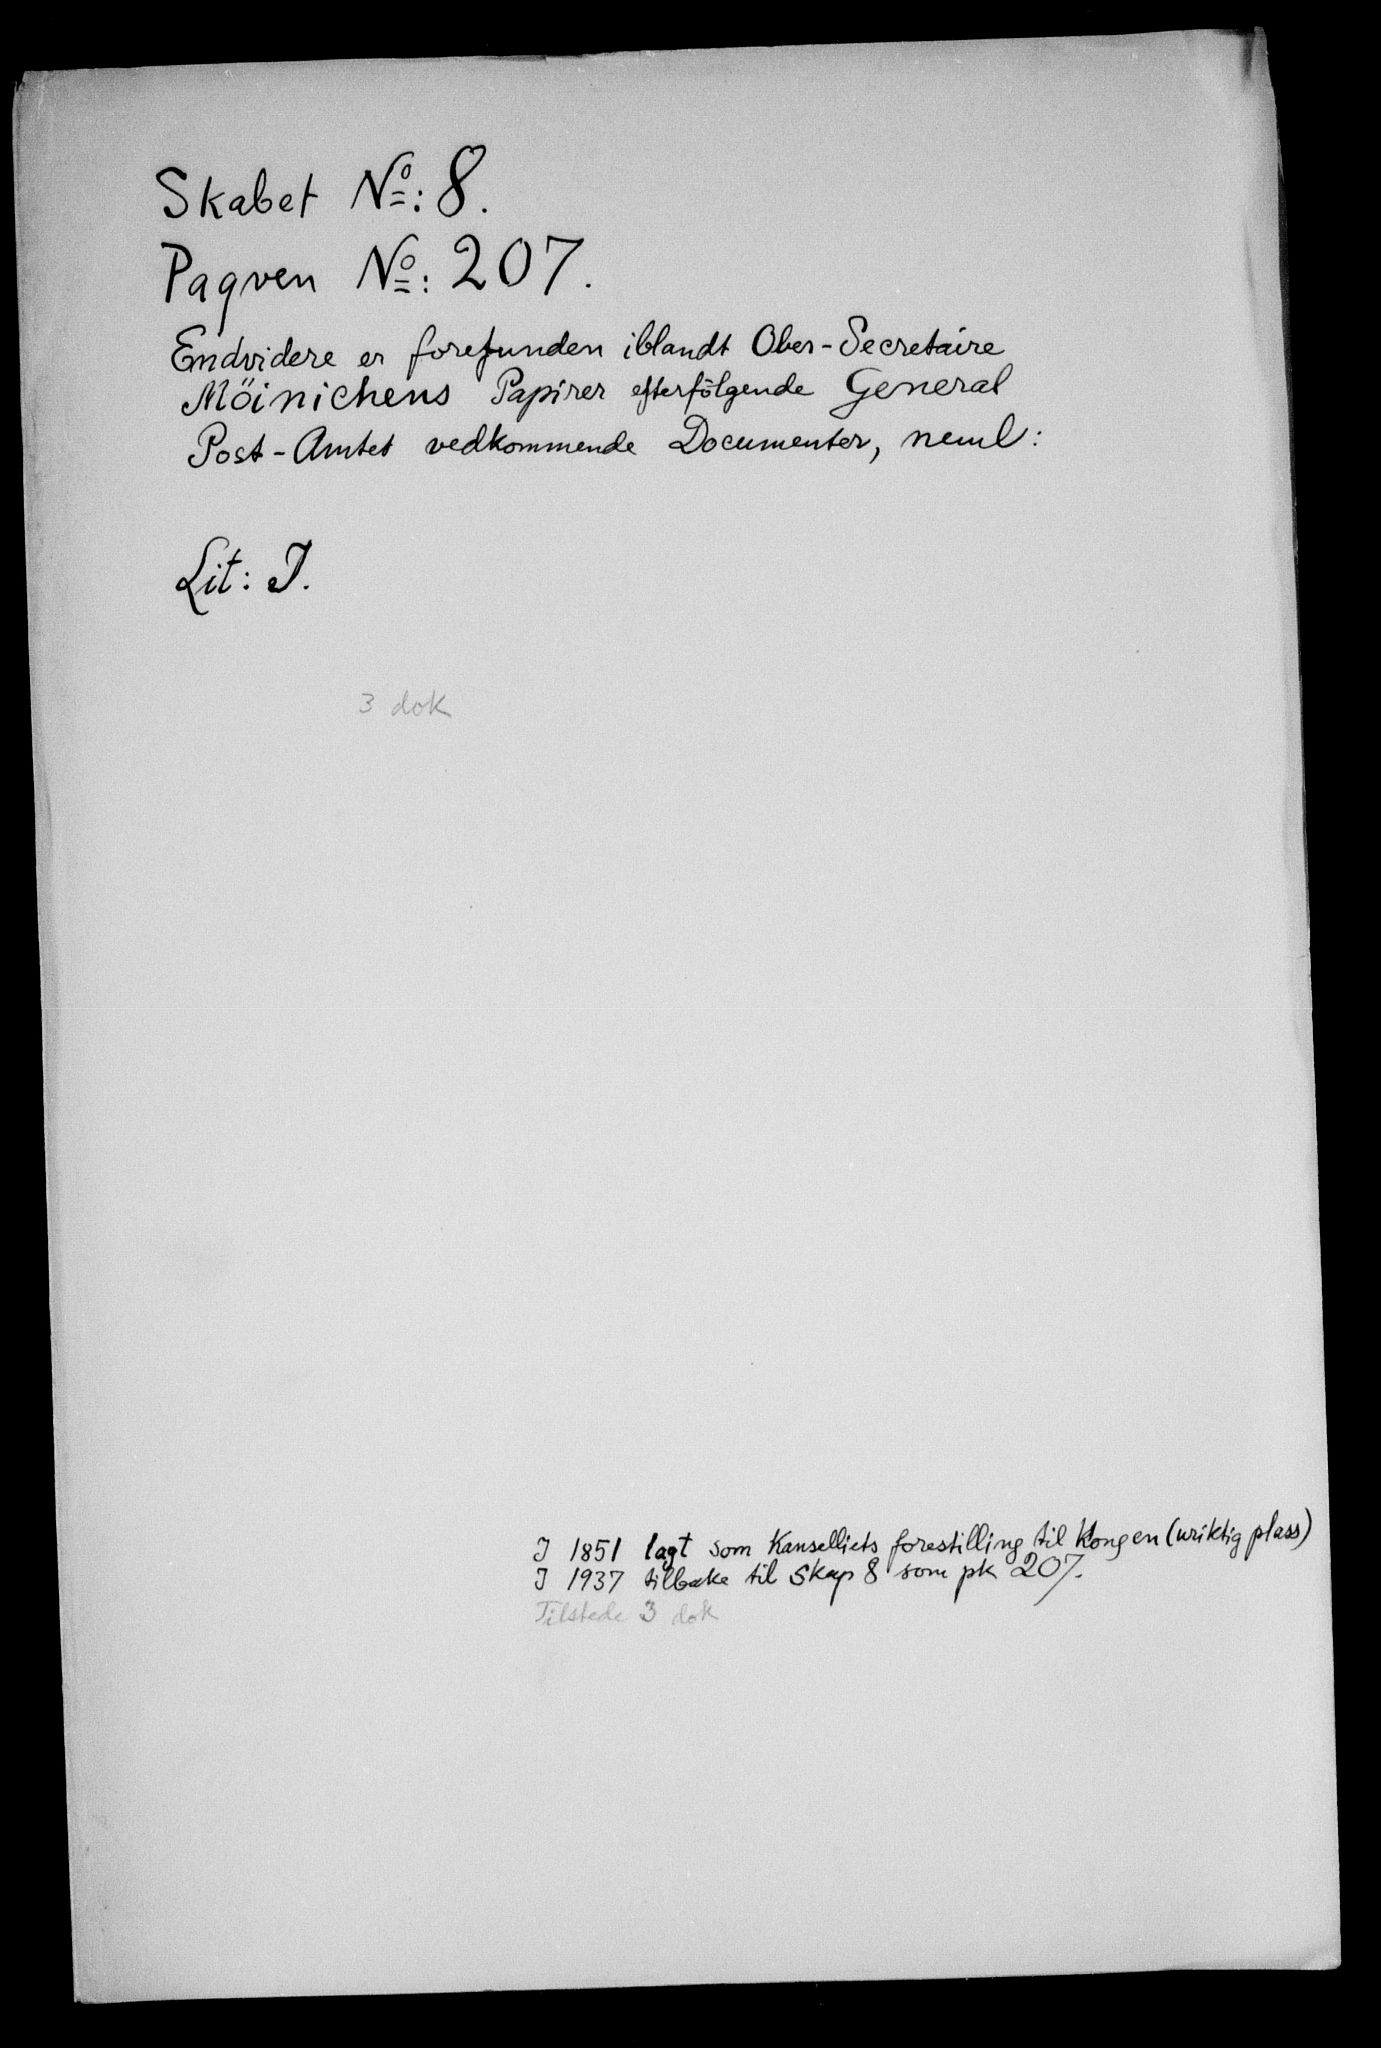 Skabet No: 8.
Paqven No: 207.
Endvidere er forefunden iblandt Ober-Secretaire
Möinichens Papirer efterfölgende General
Post-Amtet vedkommende Documenter, neml:
Lit: I.
3 dok
I 1851 lagt som Kanselliets forestilling til Kongen (uriktig plass)
I 1937 tilbake til skap 8 som pk 207.
Tilstede 3 dok